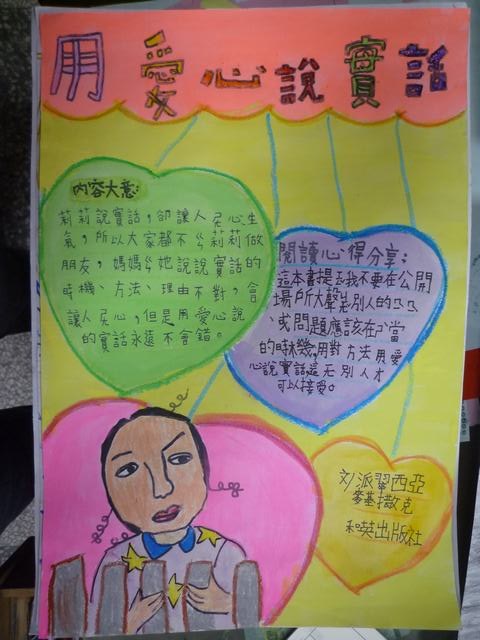 用愛心說實話
內容大意:
莉莉說實話，卻讓人死心生
氣，所以大家都不ㄍ莉莉做
朋友，媽媽ㄍ她說說實話的
時機、方法、理由不對，會
讓人死心，但是用愛心說
的實話永遠不會錯。
閱讀心得分享:
這本書提到我不要在公開
場所大聲說別人的
、或問題應該在 當
的時機,用對方法用愛
心說實話這 別人才
可以接受。
文/派翠西亞
麥基撒克
和英出版社